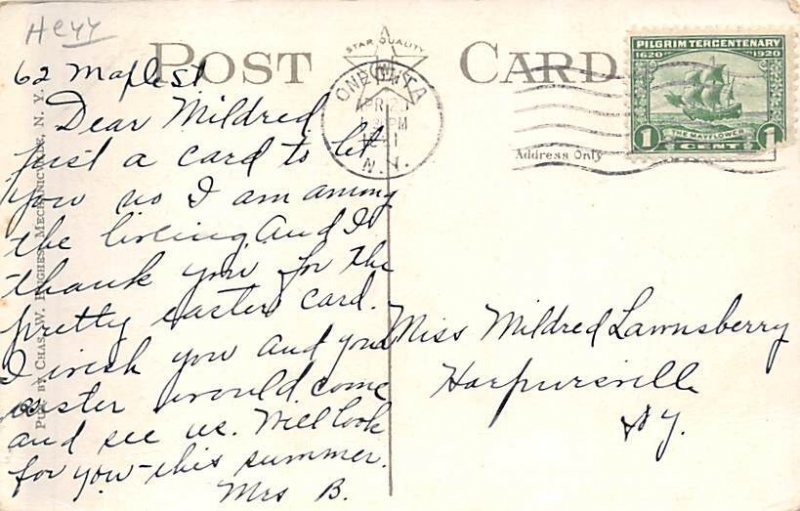 Heyy
POST CARD
STAR QUALITY
62 Maple St
Dear Mildred
just a card to let
you no I am among
the living. And I
thank you for the
pretty easter card.
I wish you and your
sister would come
and see us. Will look
for you this summer.
Mrs B.
PUB. BY CHAS. W. HUGHES, MECHANICVILLE, N. Y.
ONEONTA
APR
PM
N. Y.
PILGRIM TERCENTENARY
1620 1920
THE MAYFLOWER
1 CENT 1
Address Only
Miss Mildred Lawnsberry
Harpursville
N Y.